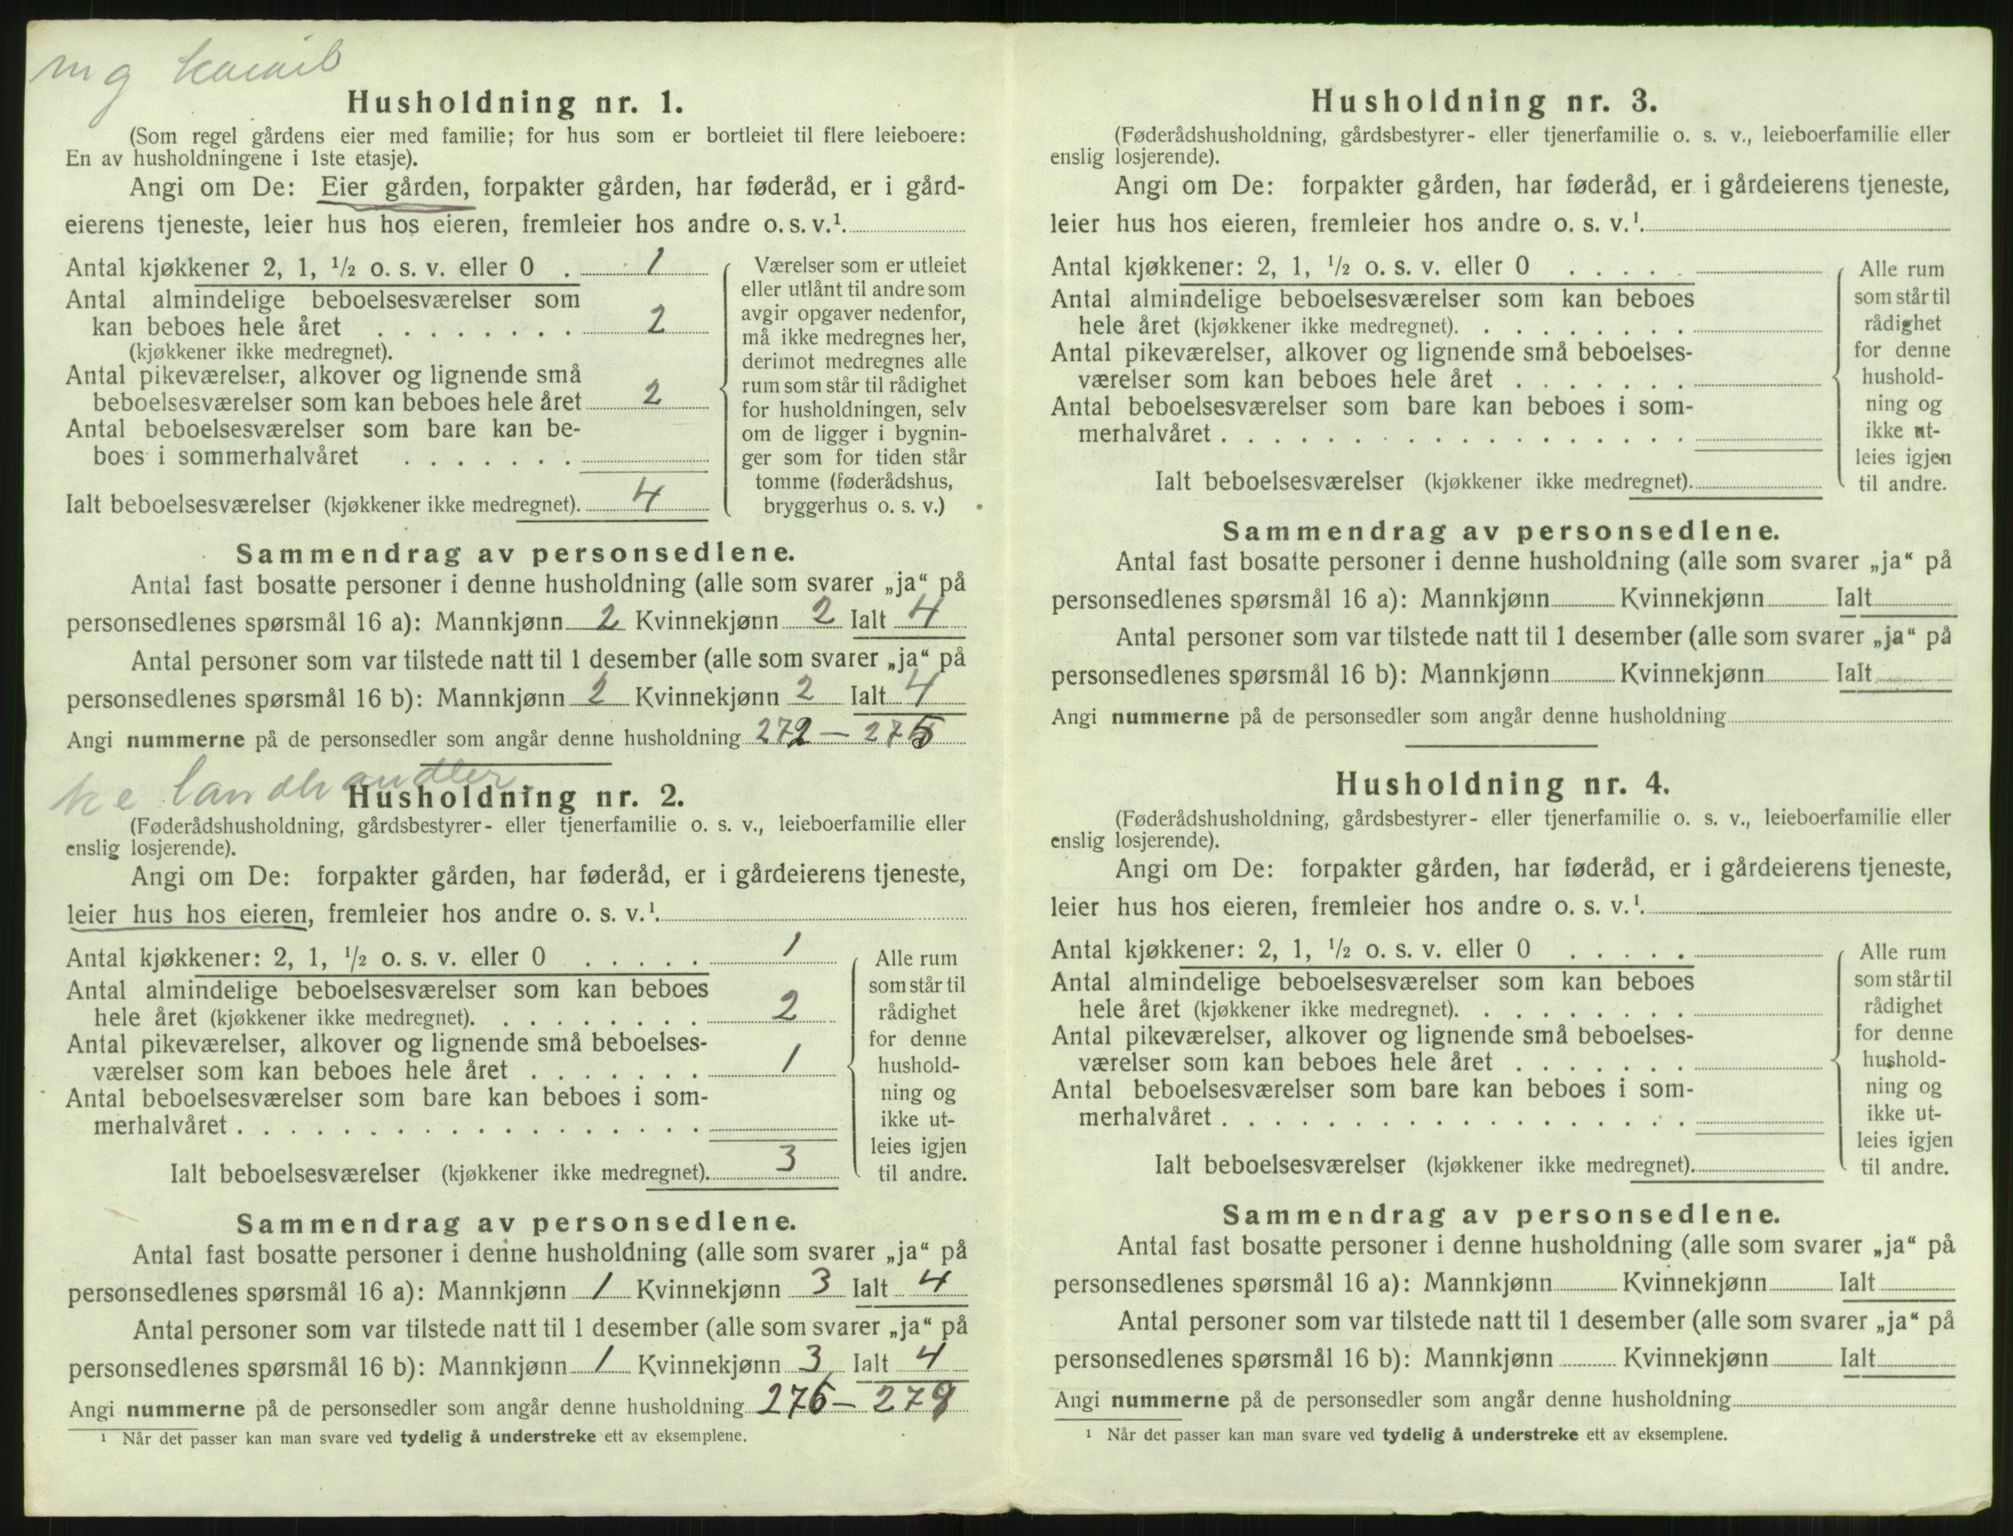 Husholdning nr. 1.
(Som regel gårdens eier med familie; for hus som er bortleiet til flere leieboere:
En av husholdningene i 1ste etasje).
Angi om De: Eier gården, forpakter gården, har føderåd, er i gård-
eierens tjeneste, leier hus hos eieren, fremleier hos andre o. s. v.¹.
Antal kjøkkener 2, 1, ½ o. s. v. eller 0 . 1
Antal almindelige beboelsesværelser som
kan beboes hele året . . . . . . . . 2
(kjøkkener ikke medregnet).
Antal pikeværelser, alkover og lignende små
beboelsesværelser som kan beboes hele året 2
Antal beboelsesværelser som bare kan be-
boes i sommerhalvåret . . . . . . .
Ialt beboelsesværelser (kjøkkener ikke medregnet). 4
Værelser som er utleiet
eller utlånt til andre som
avgir opgaver nedenfor,
må ikke medregnes her,
derimot medregnes alle
rum som står til rådighet
for husholdningen, selv
om de ligger i bygnin-
ger som for tiden står
tomme (føderådshus,
bryggerhus o. s. v.)
Sammendrag av personsedlene.
Antal fast bosatte personer i denne husholdning (alle som svarer „ja“ på
personsedlenes spørsmål 16 a): Mannkjønn 2 Kvinnekjønn 2 Ialt 4
Antal personer som var tilstede natt til 1 desember (alle som svarer „ja“ på
personsedlenes spørsmål 16 b): Mannkjønn 2 Kvinnekjønn 2 Ialt 4
Angi nummerne på de personsedler som angår denne husholdning 272 – 275
landhandler
Husholdning nr. 2.
(Føderådshusholdning, gårdsbestyrer- eller tjenerfamilie o. s. v., leieboerfamilie eller
enslig losjerende).
Angi om De: forpakter gården, har føderåd, er i gårdeierens tjeneste,
leier hus hos eieren, fremleier hos andre o. s. v.¹.
Antal kjøkkener: 2, 1, ½ o. s. v. eller 0 . . . . . 1
Antal almindelige beboelsesværelser som kan beboes
hele året (kjøkkener ikke medregnet). . . . . . . . . 2
Antal pikeværelser, alkover og lignende små beboelses-
værelser som kan beboes hele året . . . . . . . 1
Antal beboelsesværelser som bare kan beboes i som-
merhalvåret . . . . . . . . . . . . . . . . . .
Ialt beboelsesværelser (kjøkkener ikke medregnet). 3
Alle rum
som står til
rådighet
for denne
hushold-
ning og
ikke ut-
leies igjen
til andre.
Sammendrag av personsedlene.
Antal fast bosatte personer i denne husholdning (alle som svarer „ja“ på
personsedlenes spørsmål 16 a): Mannkjønn 1 Kvinnekjønn 3 Ialt 4
Antal personer som var tilstede natt til 1 desember (alle som svarer „ja“ på
personsedlenes spørsmål 16 b): Mannkjønn 1 Kvinnekjønn 3 Ialt 4
Angi nummerne på de personsedler som angår denne husholdning 276 – 279
¹ Når det passer kan man svare ved tydelig å understreke ett av eksemplene.
Husholdning nr. 3.
(Føderådshusholdning, gårdsbestyrer- eller tjenerfamilie o. s. v., leieboerfamilie eller
enslig losjerende).
Angi om De: forpakter gården, har føderåd, er i gårdeierens tjeneste,
leier hus hos eieren, fremleier hos andre o. s. v.¹.
Antal kjøkkener: 2, 1, ½ o. s. v. eller 0 . . . . .
Antal almindelige beboelsesværelser som kan beboes
hele året (kjøkkener ikke medregnet). . . . . . . . .
Antal pikeværelser, alkover og lignende små beboelses-
værelser som kan beboes hele året . . . . . . .
Antal beboelsesværelser som bare kan beboes i som-
merhalvåret . . . . . . . . . . . . . . . . . .
Ialt beboelsesværelser (kjøkkener ikke medregnet).
Alle rum
som står til
rådighet
for denne
hushold-
ning og
ikke ut-
leies igjen
til andre.
Sammendrag av personsedlene.
Antal fast bosatte personer i denne husholdning (alle som svarer „ja“ på
personsedlenes spørsmål 16 a): Mannkjønn Kvinnekjønn Ialt
Antal personer som var tilstede natt til 1 desember (alle som svarer „ja“ på
personsedlenes spørsmål 16 b): Mannkjønn Kvinnekjønn Ialt
Angi nummerne på de personsedler som angår denne husholdning
Husholdning nr. 4.
(Føderådshusholdning, gårdsbestyrer- eller tjenerfamilie o. s. v., leieboerfamilie eller
enslig losjerende).
Angi om De: forpakter gården, har føderåd, er i gårdeierens tjeneste,
leier hus hos eieren, fremleier hos andre o. s. v.¹.
Antal kjøkkener: 2, 1, ½ o. s. v. eller 0 . . . . .
Antal almindelige beboelsesværelser som kan beboes
hele året (kjøkkener ikke medregnet). . . . . . . . .
Antal pikeværelser, alkover og lignende små beboelses-
værelser som kan beboes hele året . . . . . . .
Antal beboelsesværelser som bare kan beboes i som-
merhalvåret . . . . . . . . . . . . . . . . . .
Ialt beboelsesværelser (kjøkkener ikke medregnet).
Alle rum
som står til
rådighet
for denne
hushold-
ning og
ikke ut-
leies igjen
til andre.
Sammendrag av personsedlene.
Antal fast bosatte personer i denne husholdning (alle som svarer „ja“ på
personsedlenes spørsmål 16 a): Mannkjønn Kvinnekjønn Ialt
Antal personer som var tilstede natt til 1 desember (alle som svarer „ja“ på
personsedlenes spørsmål 16 b): Mannkjønn Kvinnekjønn Ialt
Angi nummerne på de personsedler som angår denne husholdning
¹ Når det passer kan man svare ved tydelig å understreke ett av eksemplene.